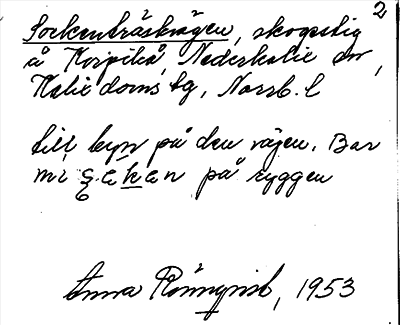 2
Sockenträskvägen, skogsstig
å Korpilrå, Nederkalix sn,
Kalix doms tg, Norrb. l
till byn på den vägen. Bar
mi säken på ryggen
Anna Rönnqvist, 1953